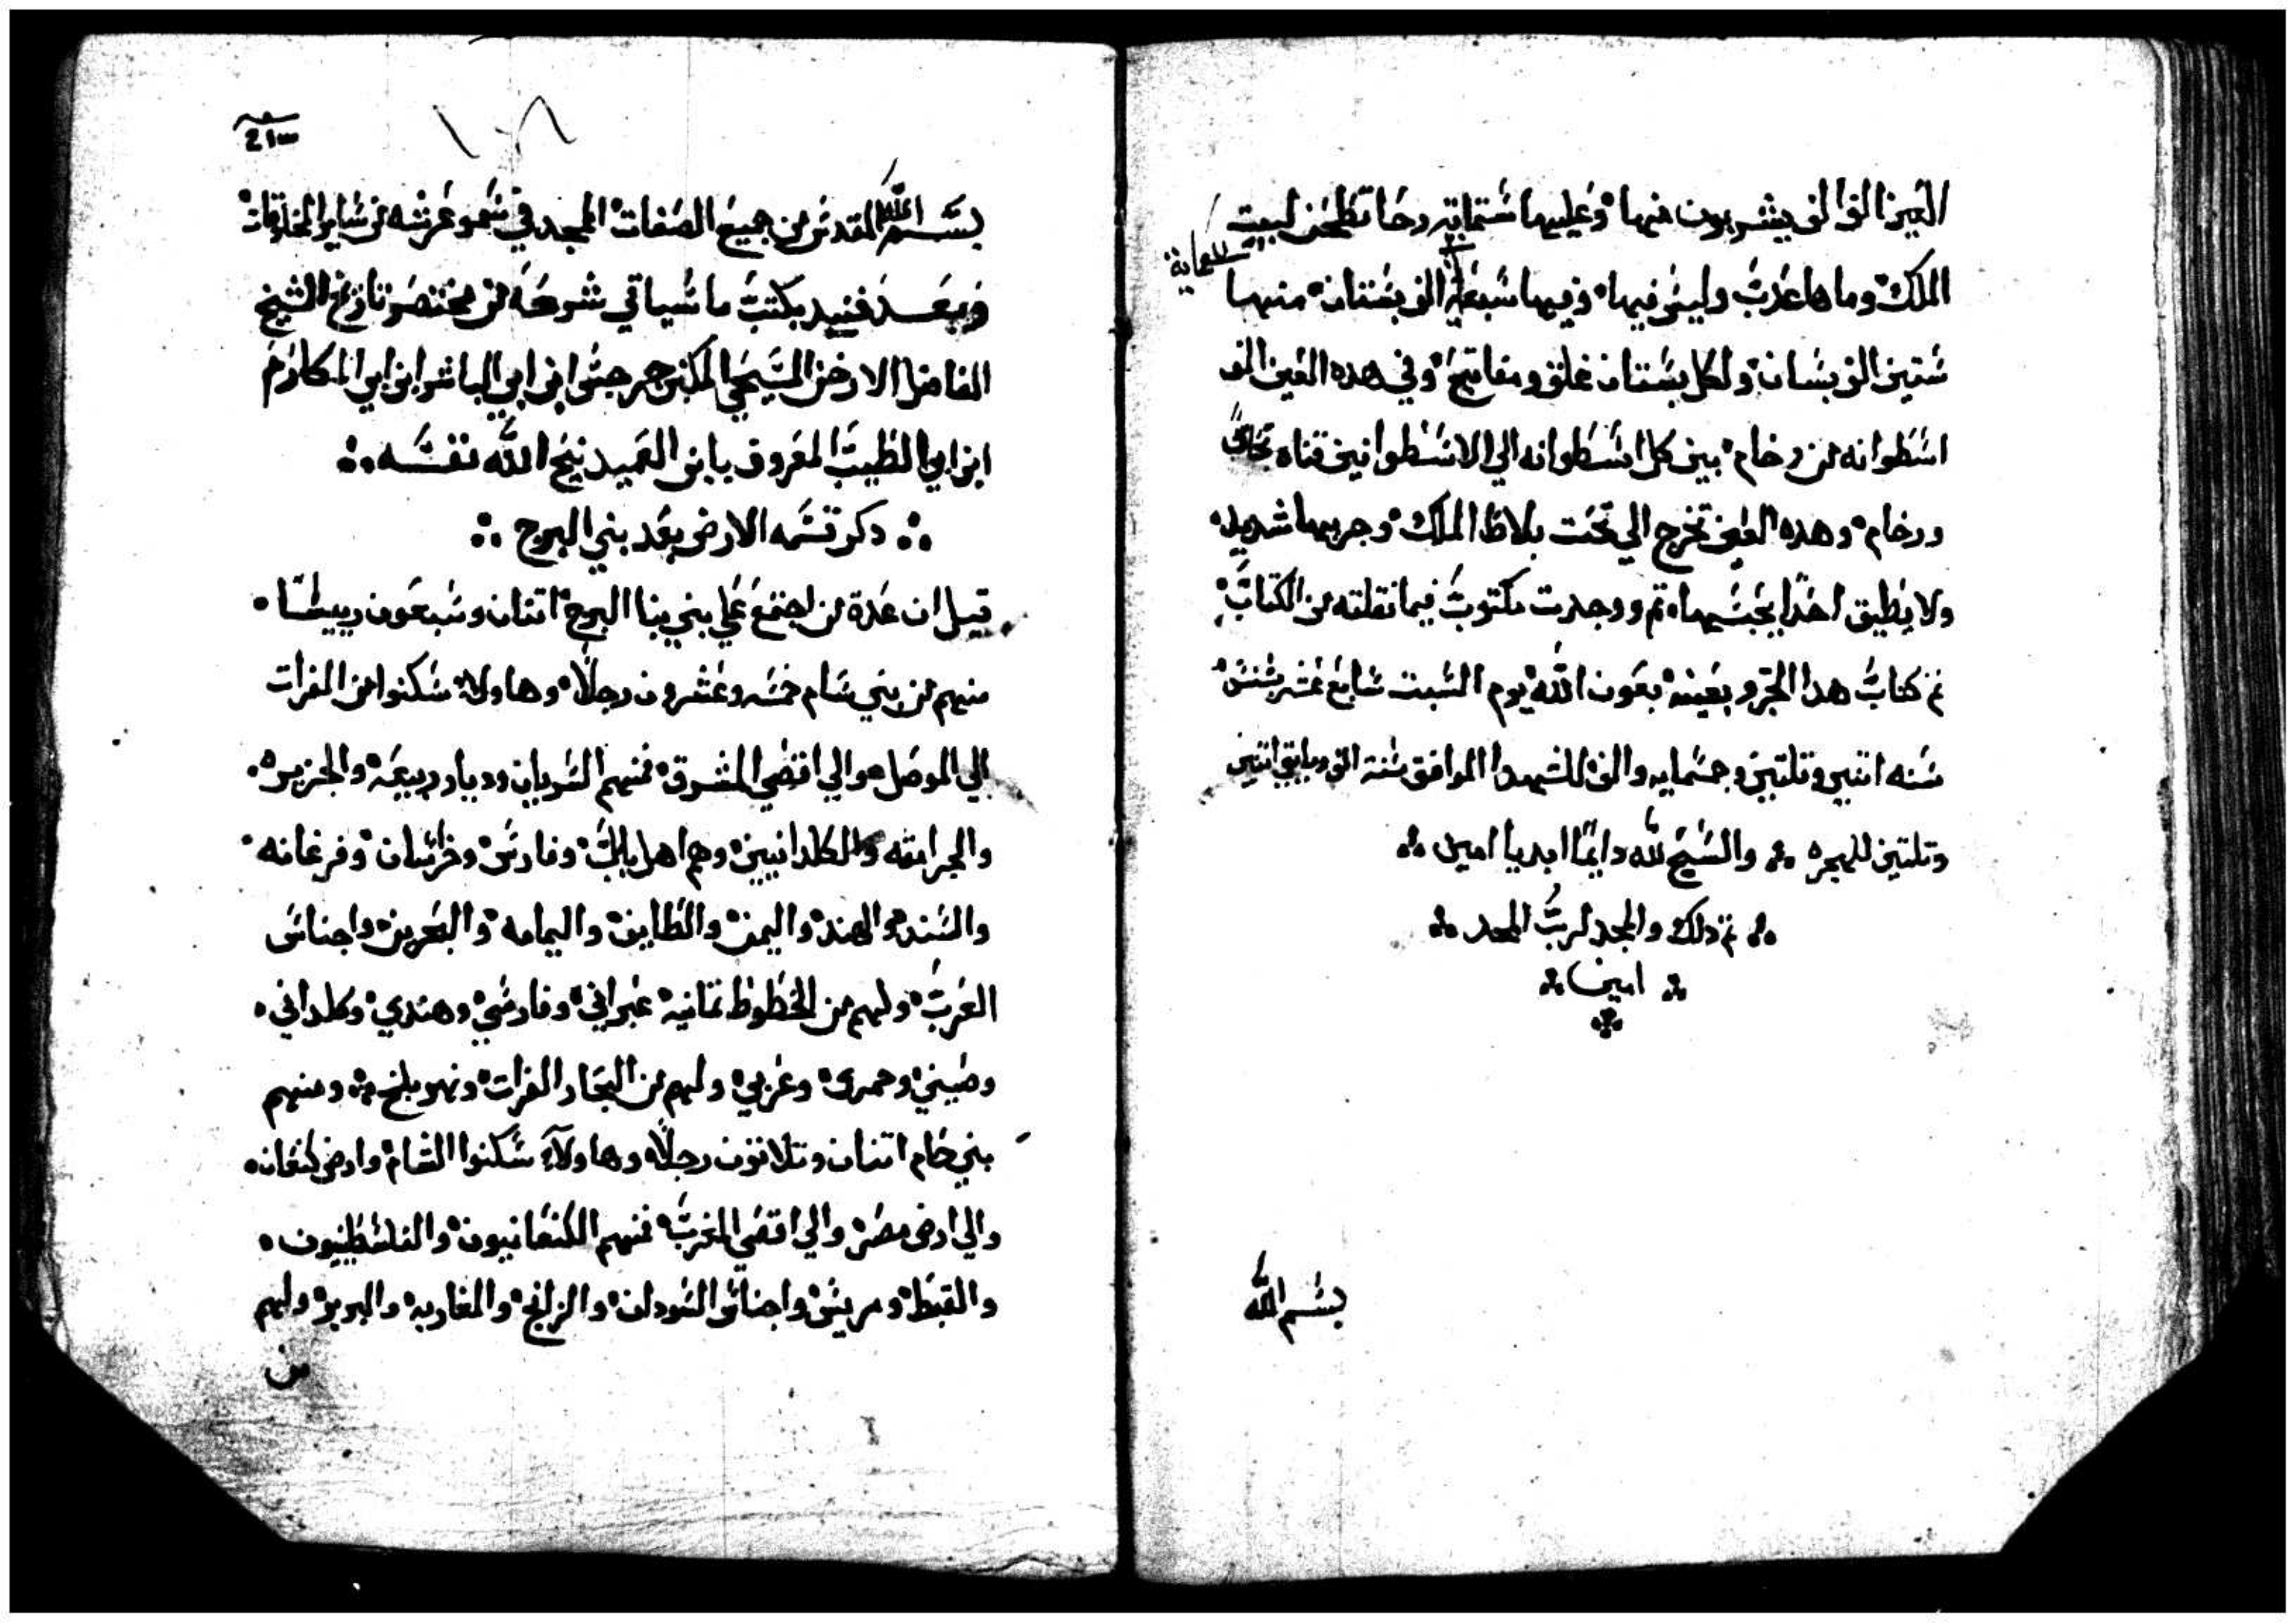 العين الذي الذي يشربون منها وعليها ستماية رحا تطحن لبيت
الملك وماها عدب وليس فيها وفيها سبعة الف بستان منها
للعماية
ستين الف بستان ولكل بستان غلق ومفاتيح وفي هده العين الف
اسطوانه من رخام بين كل اسطوانه الي الاسطوانين قناه نحاس
ورخام وهده العين تخرج الي تحت بلاط الملك وجريها شديد
ولا يطيق احدًا يحبسها تم ووجدت مكتوب فيما نقلته من الكتاب
تم كتاب هدا الجزو بعينه بعون الله يوم السبت سابع عشر بشنس
سنه اتنين وتلتين وخمسمايه والف للشهدا الموافق سنة الف ومايتي اتنين
وتلتين للهجره والسبح لله دايمًا ابديا امين
تم دلك والمجد لرب المجد
امين
بسم الله
21
بسم الله المقدس من جميع الصفات الممجد في سمو عرشه من ساير المخلوقات
وبعد فنبيد بكتب ما سياتي شرحه من مختصر تاريخ الشيخ
الفاضل الارخن المسيحي المكين جرجس ابن ابي الياسر ابن ابي المكارم
ابن ابي الطيب المعروف بابن العميد نيح الله نفسه
دكر قسمه الارض بعد بني البرج
قيل ان عدة من اجتمع علي بني بنا البرج اتنان وسبعون رييسًا
منهم من بني سام خمسه وعشرون رجلًا وهاولاء سكنوا من الفرات
الي الموصل والي اقصي المشرق فمنهم السريان وديار ربيعه والجزيره
والجرامقه والكلدانيين وهم اهل بابل وفارس وخراسان وفرغانه
والسند والهند واليمن والطايف واليمامه والبحرين واجناس
العرب ولهم من الخطوط تمانيه عبراني وفارسي وهندي وكلداني
وصيني وحمرى وعربي ولهم من البحار الفرات ونهر بلخ ومنهم
بني حام اتنان وتلاتون رجلًا وهاولاء سكنوا الشام وارض كنعان
والي ارض مصر والي اقصي المغرب فمنهم الكنعانيون والفلسطنيون
والقبط ومريس واجناس السودان والزنج والمغاربه والبربر ولهم
من